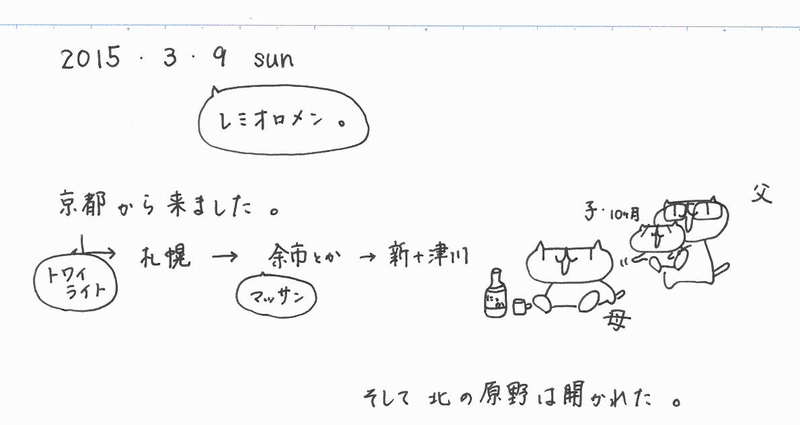 2015・3・9 sun
レミオロメン。
京都から来ました。
子・10ヶ月
父
→ 札幌 → 余市とか → 新十津川
トワイ
ライト
マッサン
母
そして 北の原野は開かれた。